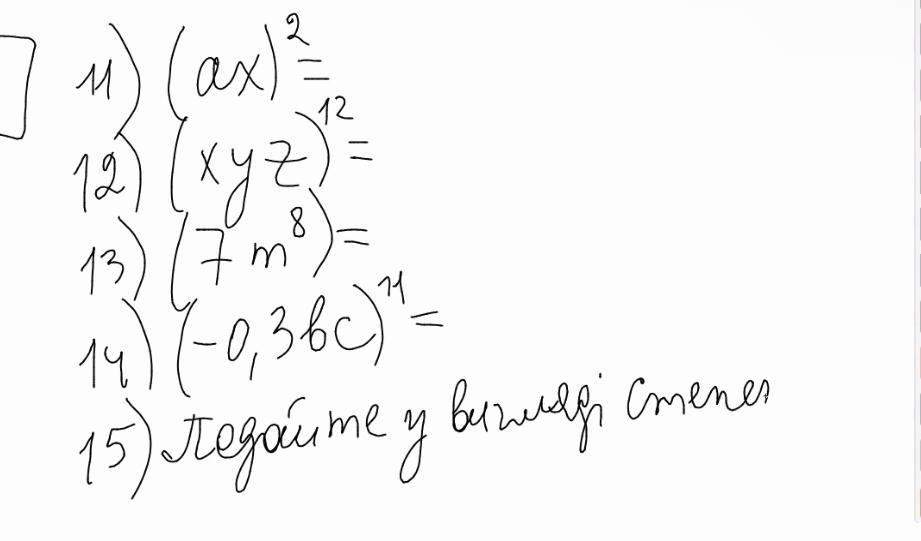 11) (ax)²=
12) (xyz)¹²=
13) (7m⁸)=
14) (-0,3bc)¹¹=
15) Подайте у вигляді степеня